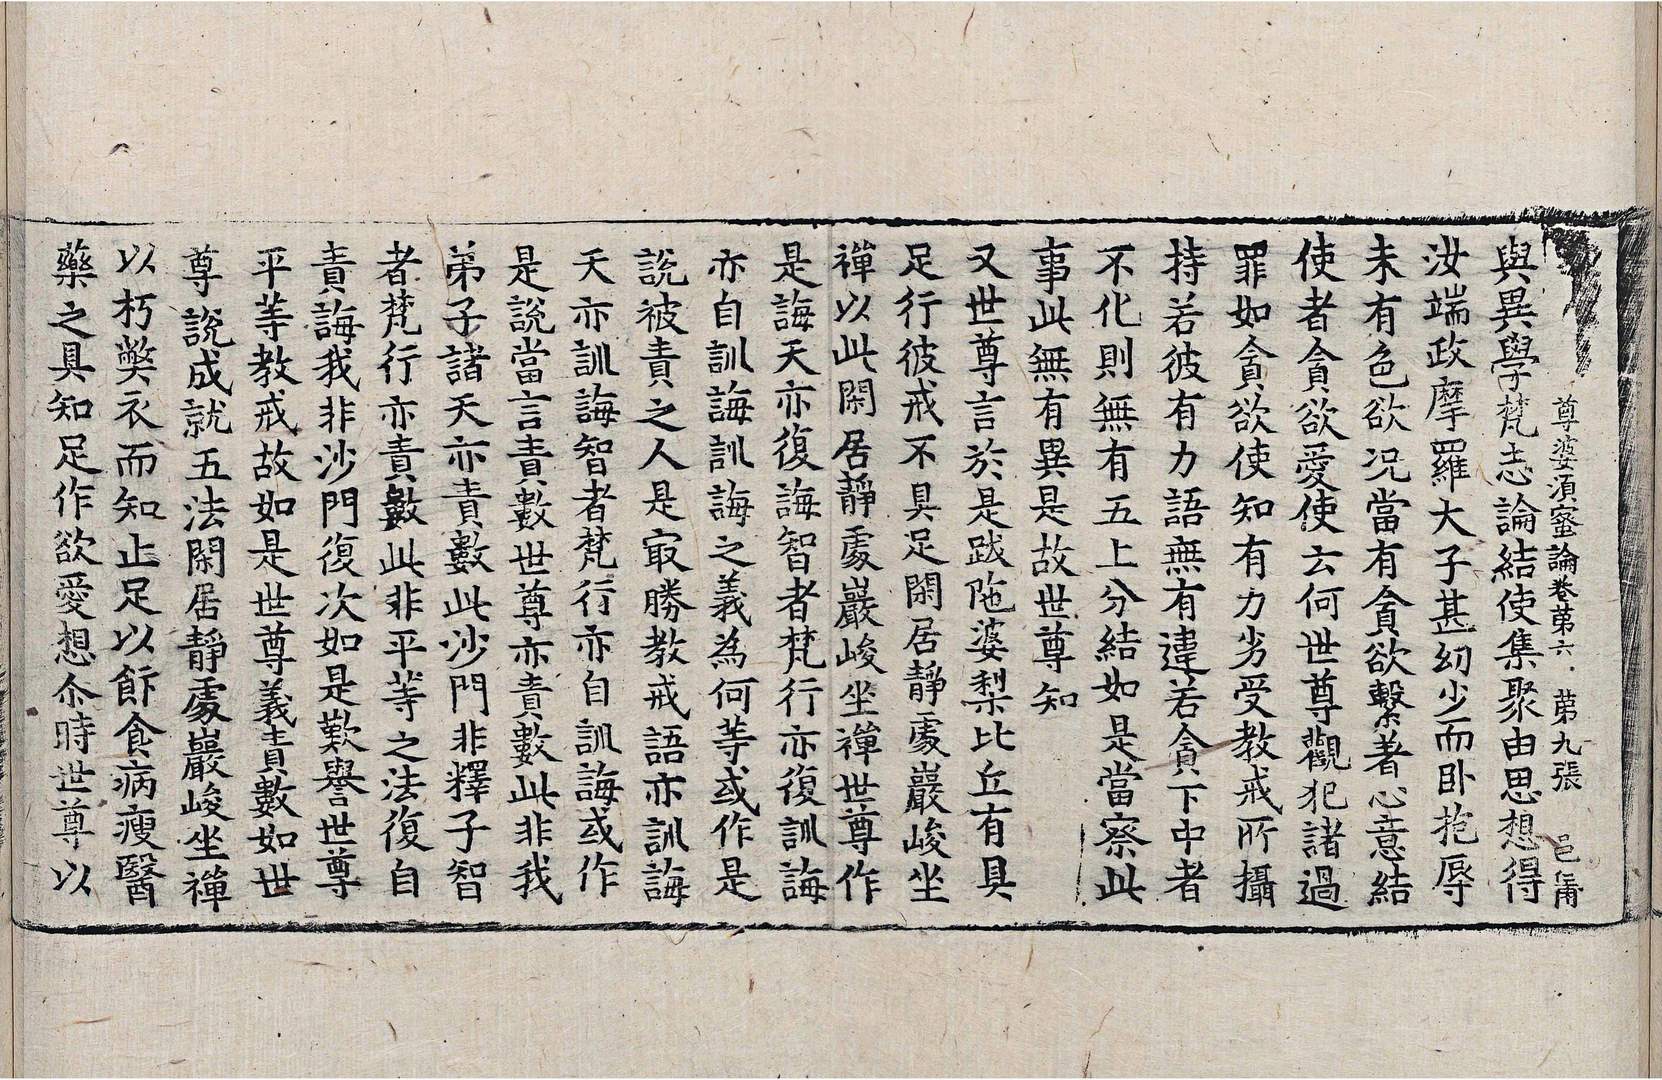 尊婆須蜜論卷第六　第九張　邑
與異學梵志論結使集聚由思想得
汝端政摩羅大子甚幼少而卧抱辱
未有色欲况當有貪欲繫著心意結
使者貪欲愛使云何世尊觀犯諸過
罪如貪欲使知有力劣受教戒所攝
持若彼有力語無有違若貪下中者
不化則無有五上分結如是當察此
事此無有異是故世尊知
又世尊言於是跋陁婆梨比丘有具
足行彼戒不具足閑居靜處巖峻坐
禪以此閑居靜處巖峻坐禪世尊作
是誨天亦復誨智者梵行亦復訓誨
亦自訓誨訓誨之義為何等或作是
說彼責之人是㝡勝教戒語亦訓誨
天亦訓誨智者梵行亦自訓誨或作
是說當言責數世尊亦責數此非我
弟子諸天亦責數此沙門非釋子智
者梵行亦責數此非平等之法復自
責誨我非沙門復次如是歎譽世尊
平等教戒故如是世尊義責數如世
尊說成就五法閑居靜處巖峻坐禪
以朽獘衣而知止足以飰食病瘦醫
藥之具知足作欲愛想尒時世尊以